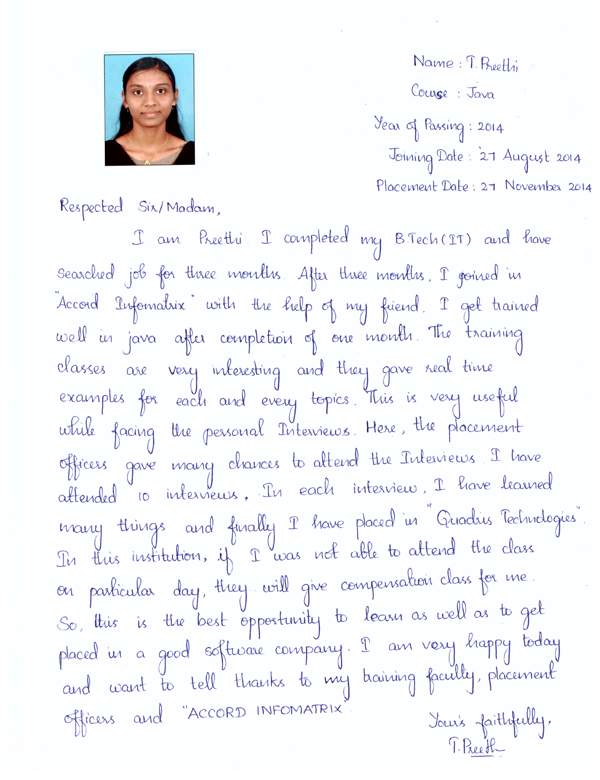 Name : T. Preethi
Course : Java
Year of Passing : 2014
Joining Date : 27 August 2014
Placement Date : 27 November 2014
Respected Sir/Madam,
I am Preethi I completed my B Tech (IT) and have
searched job for three months. After three months, I joined in
"Accord Infomatrix" with the help of my friend. I get trained
well in java after completion of one month. The training
classes are very interesting and they gave real time
examples for each and every topics. This is very useful
while facing the personal Interviews. Here, the placement
officers gave many chances to attend the Interviews I have
attended 10 interviews. In each interview, I have learned
many things and finally I have placed in "Quadrus Technologies".
In this institution, if I was not able to attend the class
on particular day, they will give compensation class for me.
So, this is the best oppertunity to learn as well as to get
placed in a good software company. I am very happy today
and want to tell thanks to my training faculty, placement
officers and "ACCORD INFOMATRIX
Your's faithfully,
T. Preethi